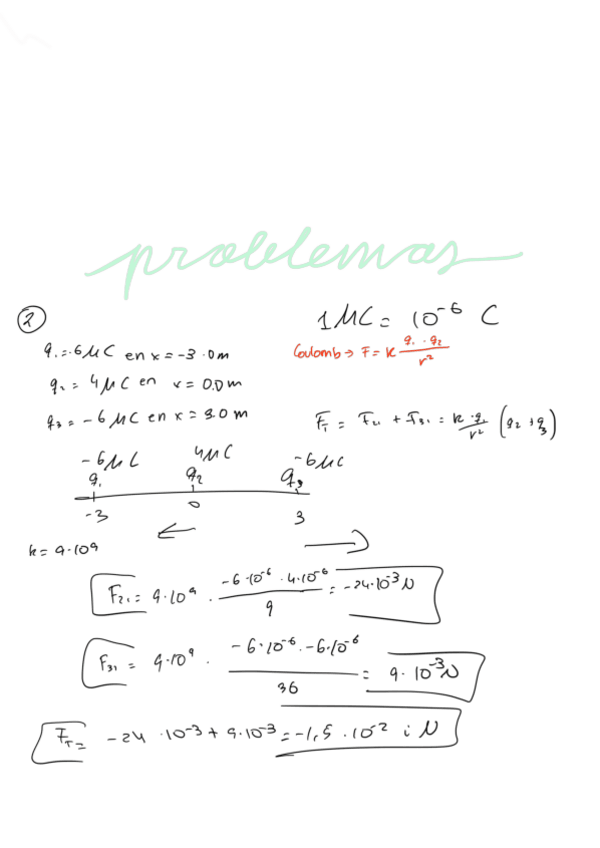 problemas
2
1 μC = 10⁻⁶ C
q₁ = -6 μC en x = -3.0 m
Coulomb → F = k q₁ · q₂ / r²
q₂ = 4 μC en x = 0.0 m
q₃ = -6 μC en x = 3.0 m
F_T = F₂₁ + F₃₁ = k · q₁ / r² (q₂ + q₃)
-6 μC 4 μC -6 μC
q₁ q₂ q₃
-3 0 3
k = 9·10⁹
F₂₁ = 9·10⁹ · -6·10⁻⁶ · 4·10⁻⁶ / 9 = -24·10⁻³ N
F₃₁ = 9·10⁹ · -6·10⁻⁶ · -6·10⁻⁶ / 36 = 9·10⁻³ N
F_T = -24 · 10⁻³ + 9·10⁻³ = -1,5 · 10⁻² i N